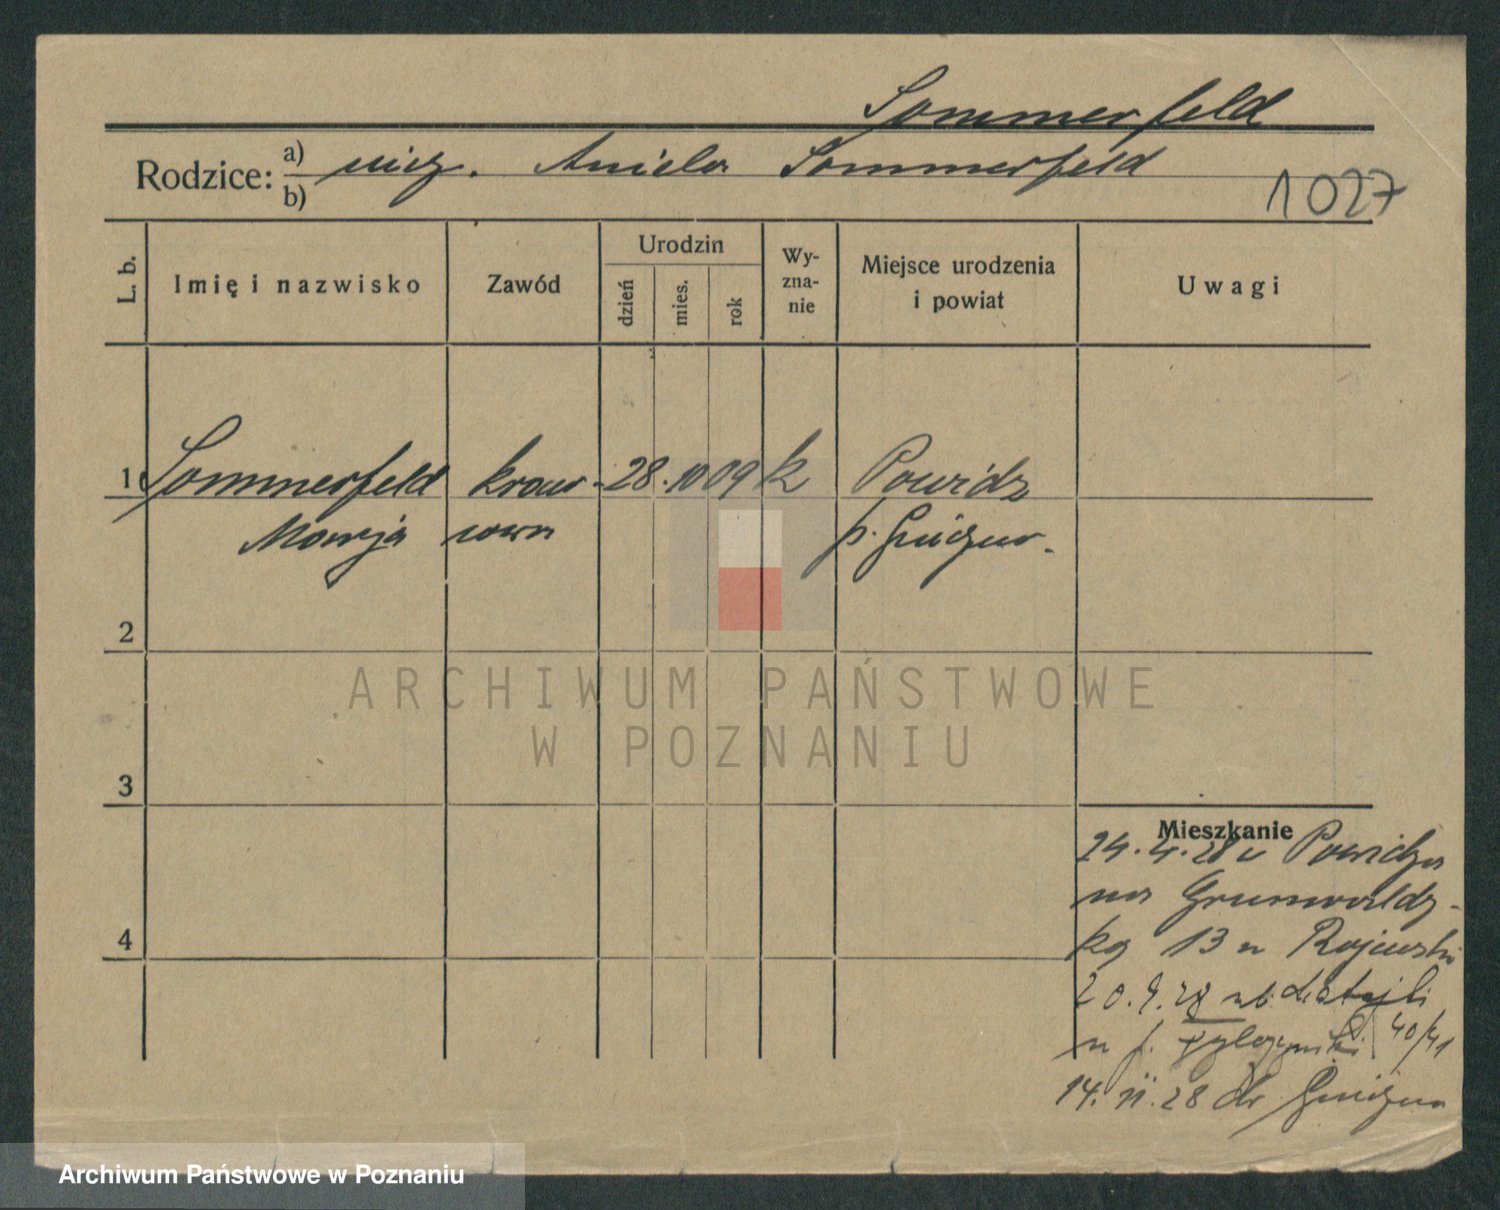 Sommerfeld
Rodzice: a) b) niez. Aniela Sommerfeld
1027
L. b. Imię i nazwisko Zawód Urodzin dzień mies. rok Wyznanie Miejsce urodzenia i powiat Uwagi
1 Sommerfeld kraw- 28. 10 09 k Powidz
Marja cowa p. Gniezno.
2
ARCHIWUM PAŃSTWOWE
W POZNANIU
3
Mieszkanie
24.4.28 z Powidza
na Grunwaldz-
ką 13 u Rajewski
4
20.9.28
u J. 40/41
14. 11. 28 do Gniezna
Archiwum Państwowe w Poznaniu